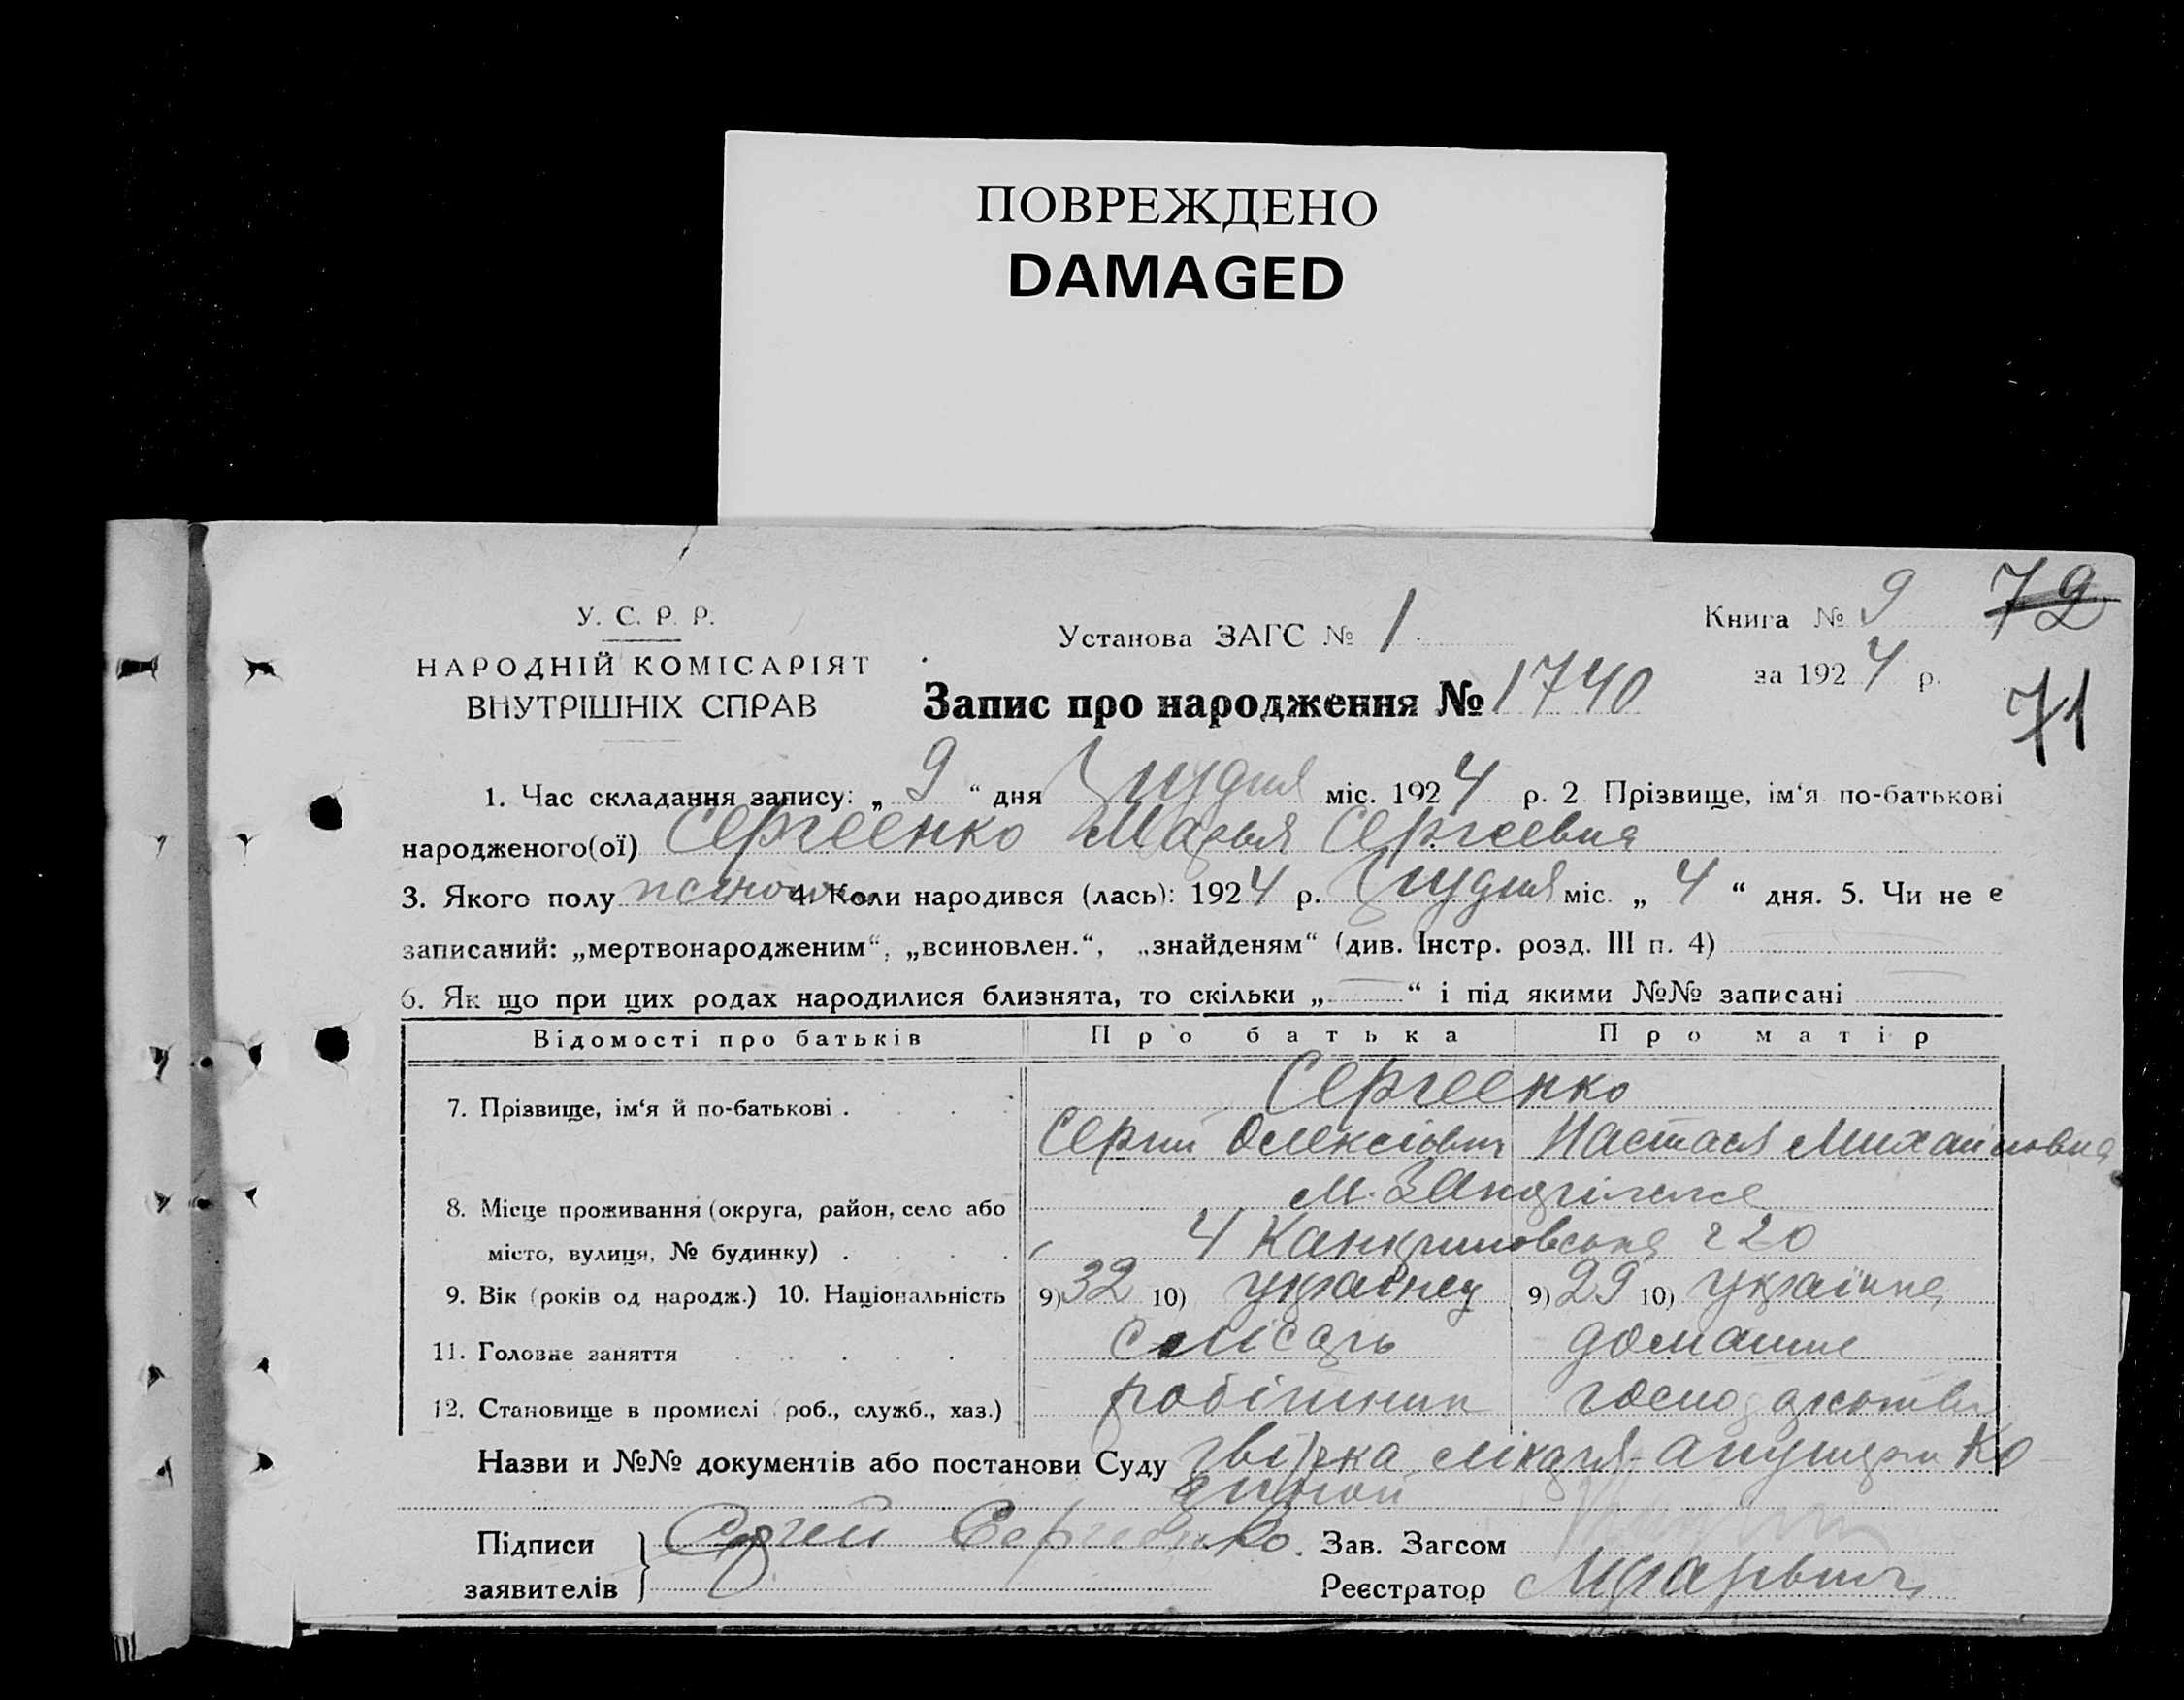 ПОВРЕЖДЕНО
DAMAGED
У. С. Р. Р.
НАРОДНІЙ КОМІСАРІЯТ
ВНУТРІШНІХ СПРАВ
Установа ЗАГС № 1
Запис про народження № 1740
Книга № 9
за 1924 р.
72
71
1. Час складання запису: „ 9 “ дня Грудня міс. 1924 р. 2 Прізвище, ім‘я по-батькові
народженого(ої) Сергеенко Марья Сергеевна
3. Якого полу 4. Коли народився (лась): 1924 р. Грудня міс. „ 4 “ дня. 5. Чи не є
записаний: „мертвонародженим“, „всиновлен.“, „знайденям“ (див. Інстр. розд. III п. 4)
6. Як що при цих родах народилися близнята, то скільки „ “ і під якими №№ записані
Відомості про батьків Про батька Про матір
7. Прізвище, ім‘я й по-батькові . Сергеенко
Сергій Олексіович Настася Михайловна
8. Місце проживання (округа, район, село або м.
місто, вулиця, № будинку) . 4 20
9. Вік (років од народж.) 10. Національність 9) 32 10) українец 9) 29 10) українка
11. Головне заняття слюсарь домашнє
12. Становище в промислі (роб., служб., хаз.) робітник
Назви и №№ документів або постанови Суду лікаря
Підписи заявителів Сергей Сергеенко.
Зав. Загсом
Реєстратор